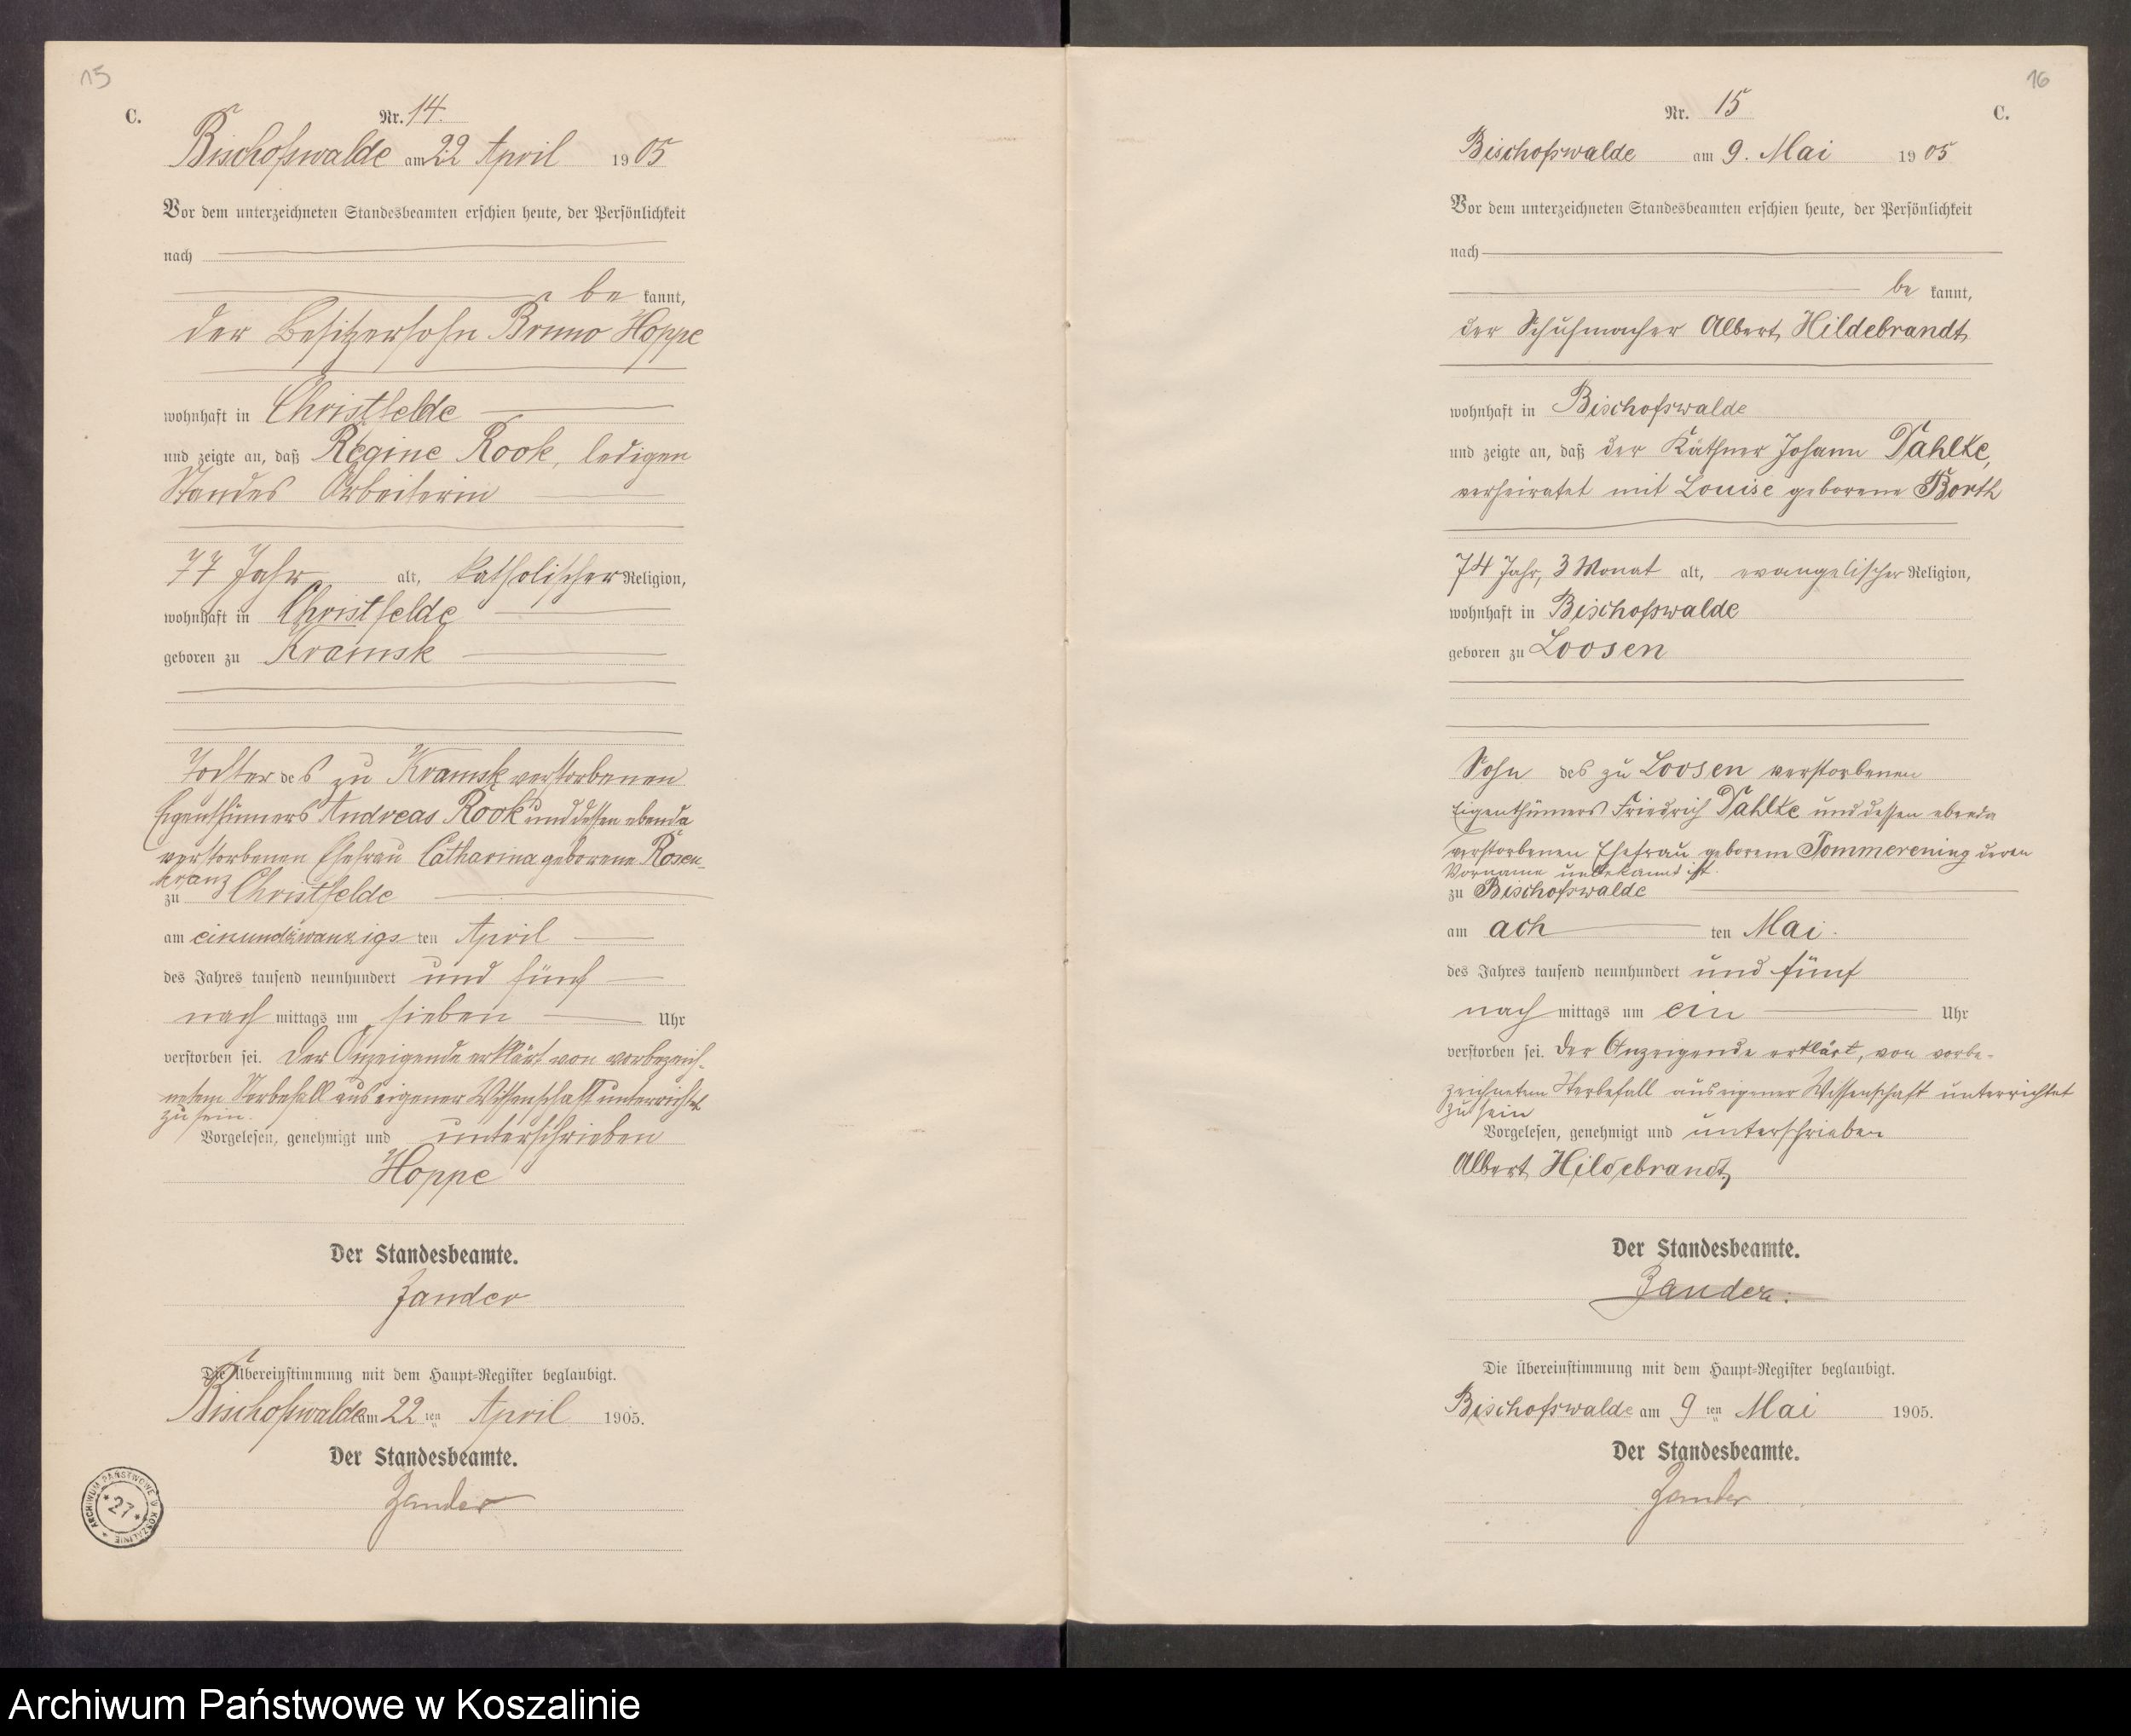 15
C.
Nr. 14.
Bischofswalde am 22 April 1905
Vor dem unterzeichneten Standesbeamten erschien heute, der Persönlichkeit
nach
be kannt,
der Besitzersohn Bruno Hoppe
wohnhaft in Christfelde
und zeigte an, daß Regine Rook, ledigen
Standes Arbeiterin
77 Jahr alt, katholischer Religion,
wohnhaft in Christfelde
geboren zu Kramsk
Tochter des zu Kramsk verstorbenen
Eigenthümers Andreas Rook und dessen ebenda
verstorbenen Ehefrau Catharina geborene Rosen-
kranz
zu Christfelde
am einundzwanzigs ten April
des Jahres tausend neunhundert und fünf
nach mittags um sieben Uhr
verstorben sei. Der Anzeigende erklärt von vorbezeich-
netem Sterbefall aus eigener Wissenschaft unterrichtet
zu sein.
Vorgelesen, genehmigt und unterschrieben
Hoppe
Der Standesbeamte.
Zander
Die Übereinstimmung mit dem Haupt-Register beglaubigt.
Bischofswalde am 22 ten April 1905.
Der Standesbeamte.
Zander
ARCHIWUM PAŃSTWOWE W KOSZALINIE
27
16
Nr. 15
C.
Bischofswalde am 9. Mai 1905
Vor dem unterzeichneten Standesbeamten erschien heute, der Persönlichkeit
nach
be kannt,
der Schuhmacher Albert Hildebrandt
wohnhaft in Bischofswalde
und zeigte an, daß der Käthner Johann Dahlke,
verheiratet mit Louise geborene Borth
74 Jahr, 3 Monat alt, evangelischer Religion,
wohnhaft in Bischofswalde
geboren zu Loosen
Sohn des zu Loosen verstorbenen
Eigenthümers Friedrich Dahlke und dessen ebenda
verstorbenen Ehefrau geborene Pommerening deren
Vorname unbekannt ist.
zu Bischofswalde
am ach ten Mai.
des Jahres tausend neunhundert und fünf
nach mittags um ein Uhr
verstorben sei. Der Anzeigende erklärt, von vorbe-
zeichnetem Sterbefall aus eigener Wissenschaft unterrichtet
zu sein
Vorgelesen, genehmigt und unterschrieben
Albert Hildebrandt
Der Standesbeamte.
Zander.
Die Übereinstimmung mit dem Haupt-Register beglaubigt.
Bischofswalde am 9 ten Mai 1905.
Der Standesbeamte.
Zander
Archiwum Państwowe w Koszalinie